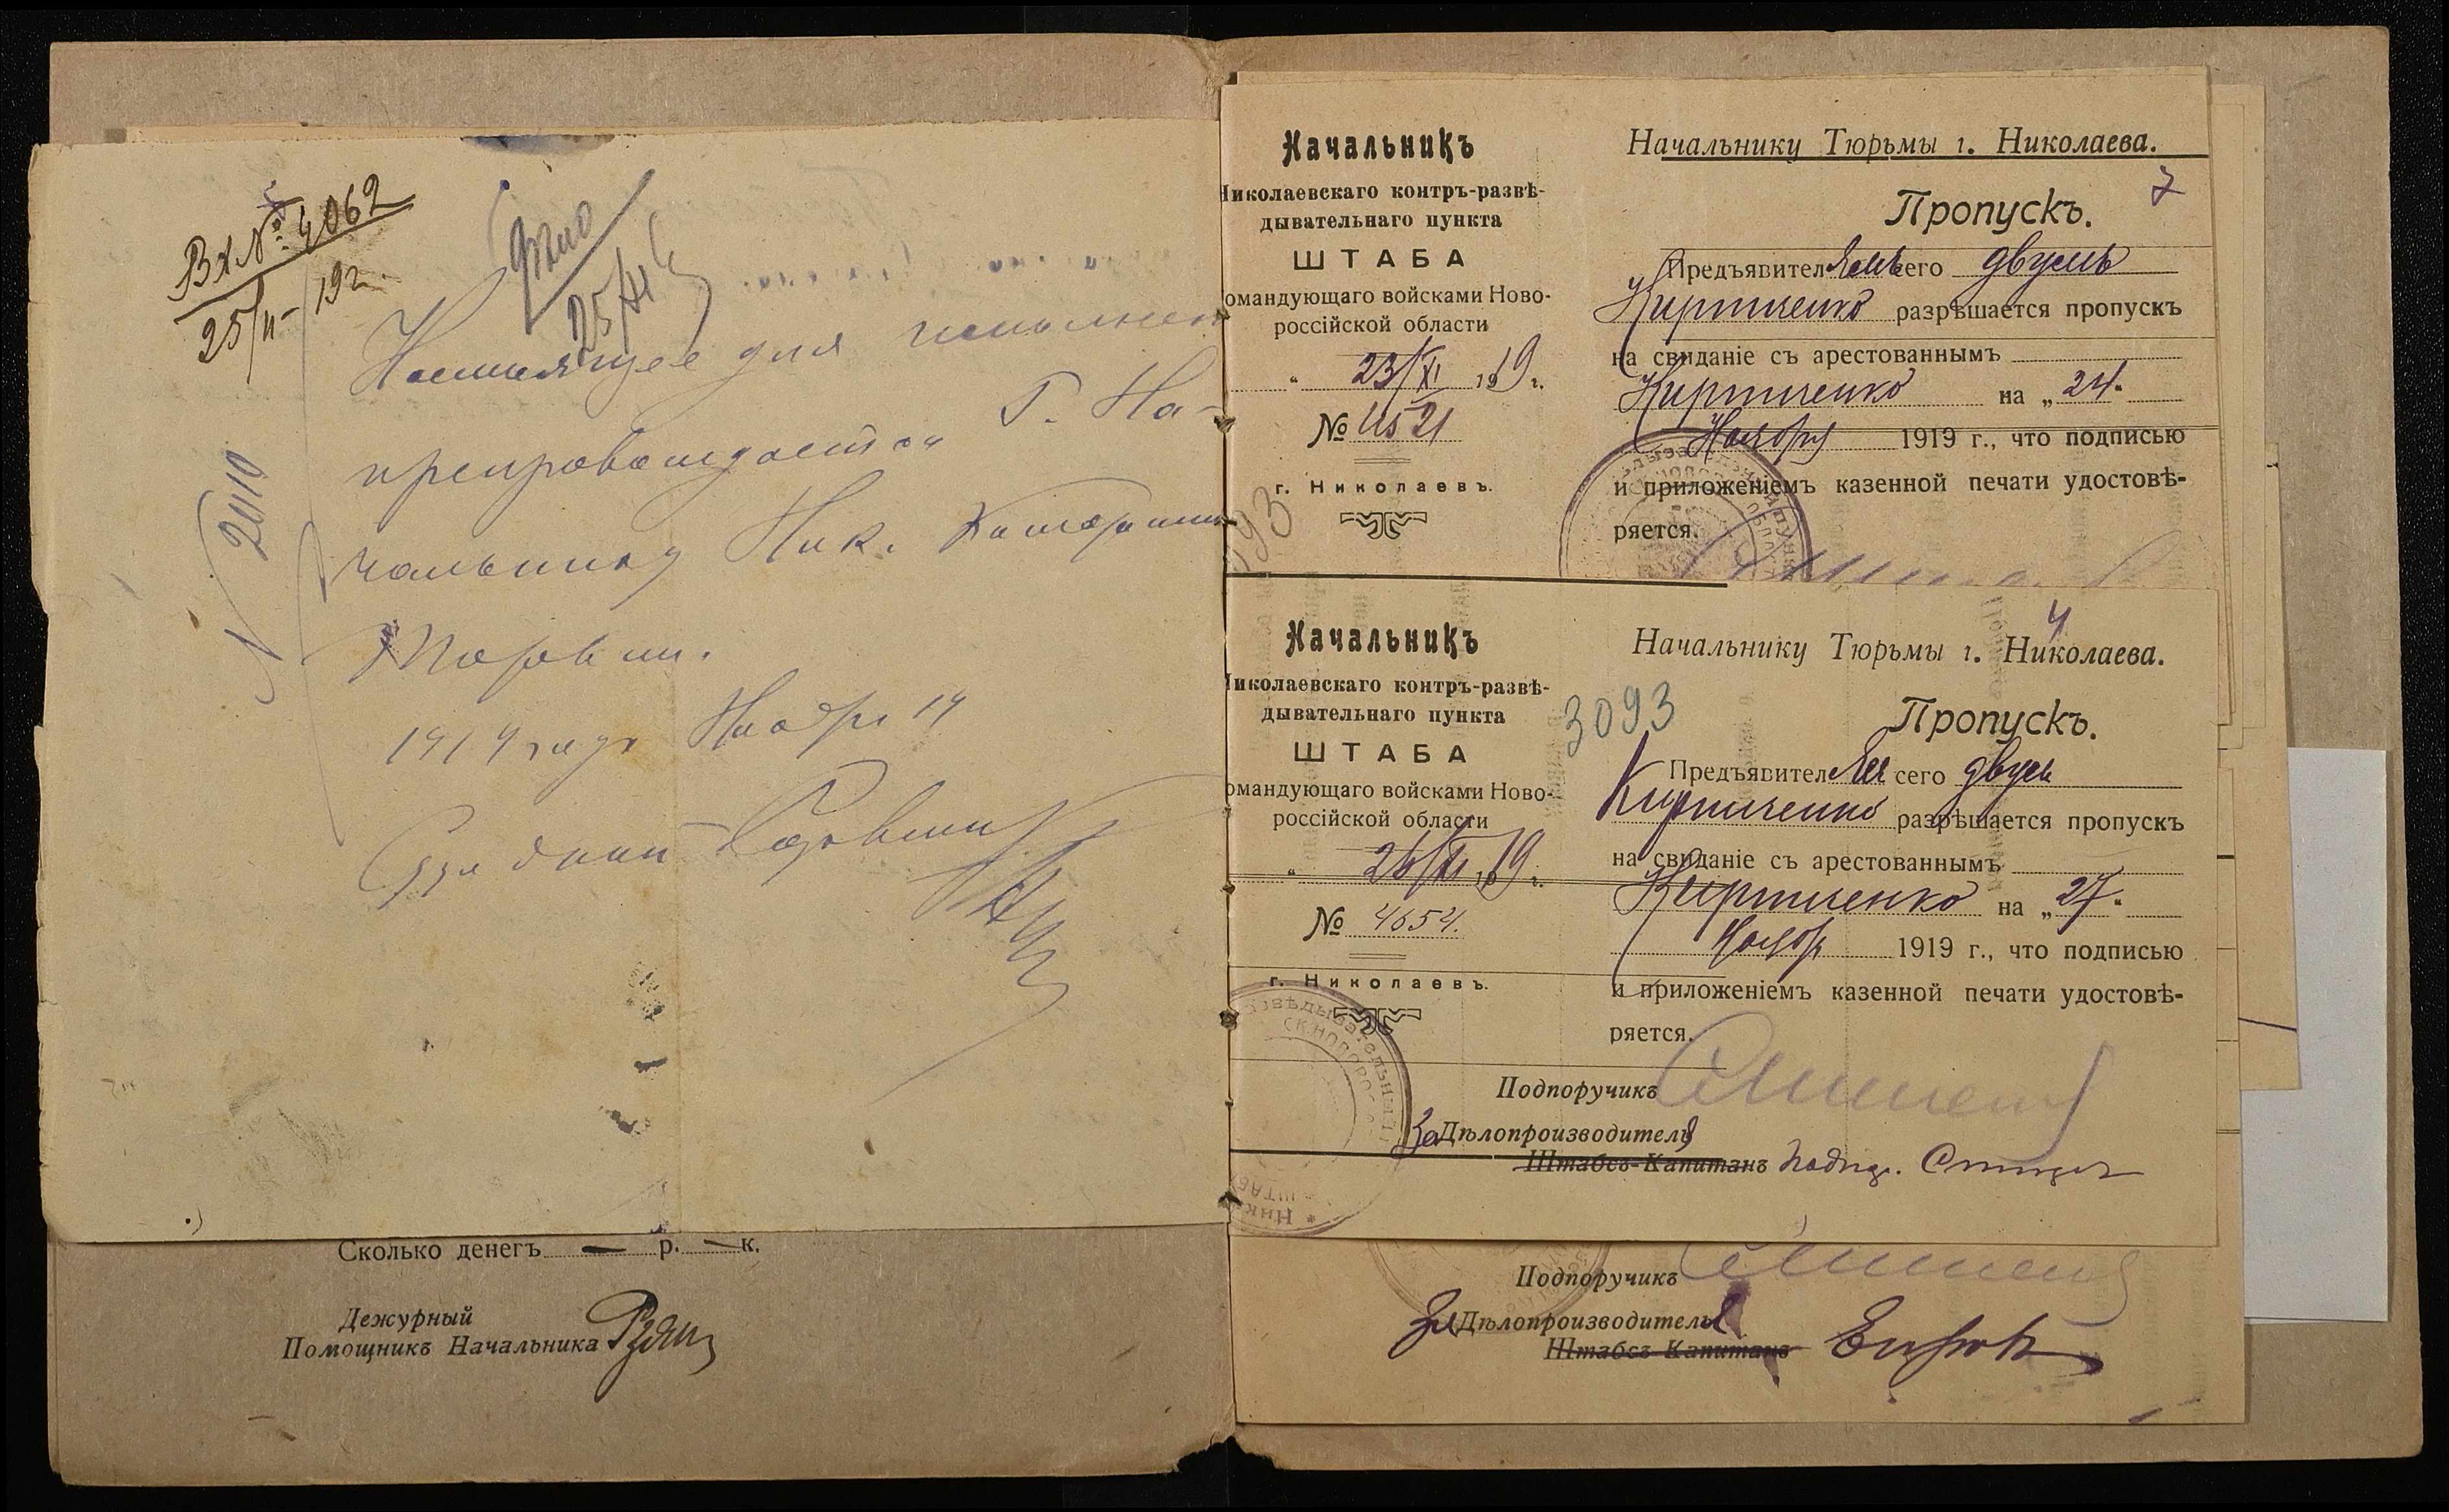 Вх № 4062
25/II - 19 г.
Дѣло
25/XI
№ 2010
Настоящее для исполнен
препровождается Г. На-
чальнику Ник. Каторжн
Тюрьмы.
1919 года Ноября 19
Сколько денегъ — р. — к.
Дежурный
Помощникъ Начальника
Начальникъ
Николаевскаго контръ-развѣ-
дывательнаго пункта
ШТАБА
омандующаго войсками Ново-
россійской области
„ 23/XI 1919 г.
№ 4521
г. Николаевъ.
Начальнику Тюрьмы г. Николаева.
7
Пропускъ.
Предъявителямъ сего двумъ
Кирпиченко разрѣшается пропускъ
на свиданіе съ арестованнымъ
Кирпиченко на „24“
Ноября 1919 г., что подписью
и приложеніемъ казенной печати удостовѣ-
ряется.
Начальникъ
Николаевскаго контръ-развѣ-
дывательнаго пункта
ШТАБА
омандующаго войсками Ново-
россійской области
„ 26/XI 1919 г.
№ 4654.
г. Николаевъ.
4
Начальнику Тюрьмы г. Николаева.
3093
Пропускъ.
Предъявителям сего двум
Кирпиченко разрѣшается пропускъ
на свиданіе съ арестованнымъ
Кирпиченко на „27“
Ноябр 1919 г., что подписью
и приложеніемъ казенной печати удостовѣ-
ряется.
Подпоручикъ
За Дѣлопроизводителя
Штабсъ-Капитанъ
Подпоручикъ
За Дѣлопроизводителя
Штабсъ-Капитанъ